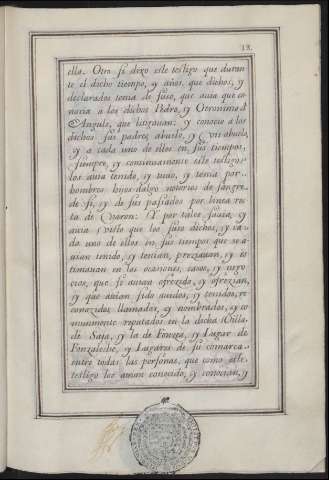 18.
ella. Otro si dixo este testigo que duran
te el dicho tiempo, y años, que dichos, y
declarados tenia de suso, que auia que co
nocia a los dichos Pedro, y Geronimo d
Angulo, que litigauan: y conocio a los
dichos sus padre, abuelo, y Visabuelo,
y a cada uno de ellos en sus tiempos,
siempre, y continuamente este testigo
los auia tenido, y tuuo, y tenia por
hombres hijos dalgo notorios de sangre
de si, y de sus passados por linea rec
ta de Varon: Y por tales sauia, y
auia visto que los suso dichos, y ca
da uno de ellos en sus tiempos que se a
uian tenido, y tenian, preziauan, y es
timauan en las ocasiones, casos, y nego
cios, que se auian ofrezido, y ofrezian,
y que auian sido auidos, y tenidos, re
conozidos llamados, y nombrados, y co
munmente reputados en la dicha Villa
de Saja, y la de Fonzea, y Lugar de
Fonzaleche, y Lugares de su comarca
entre todas las personas, que como este
testigo los auian conocido, y conocian, y